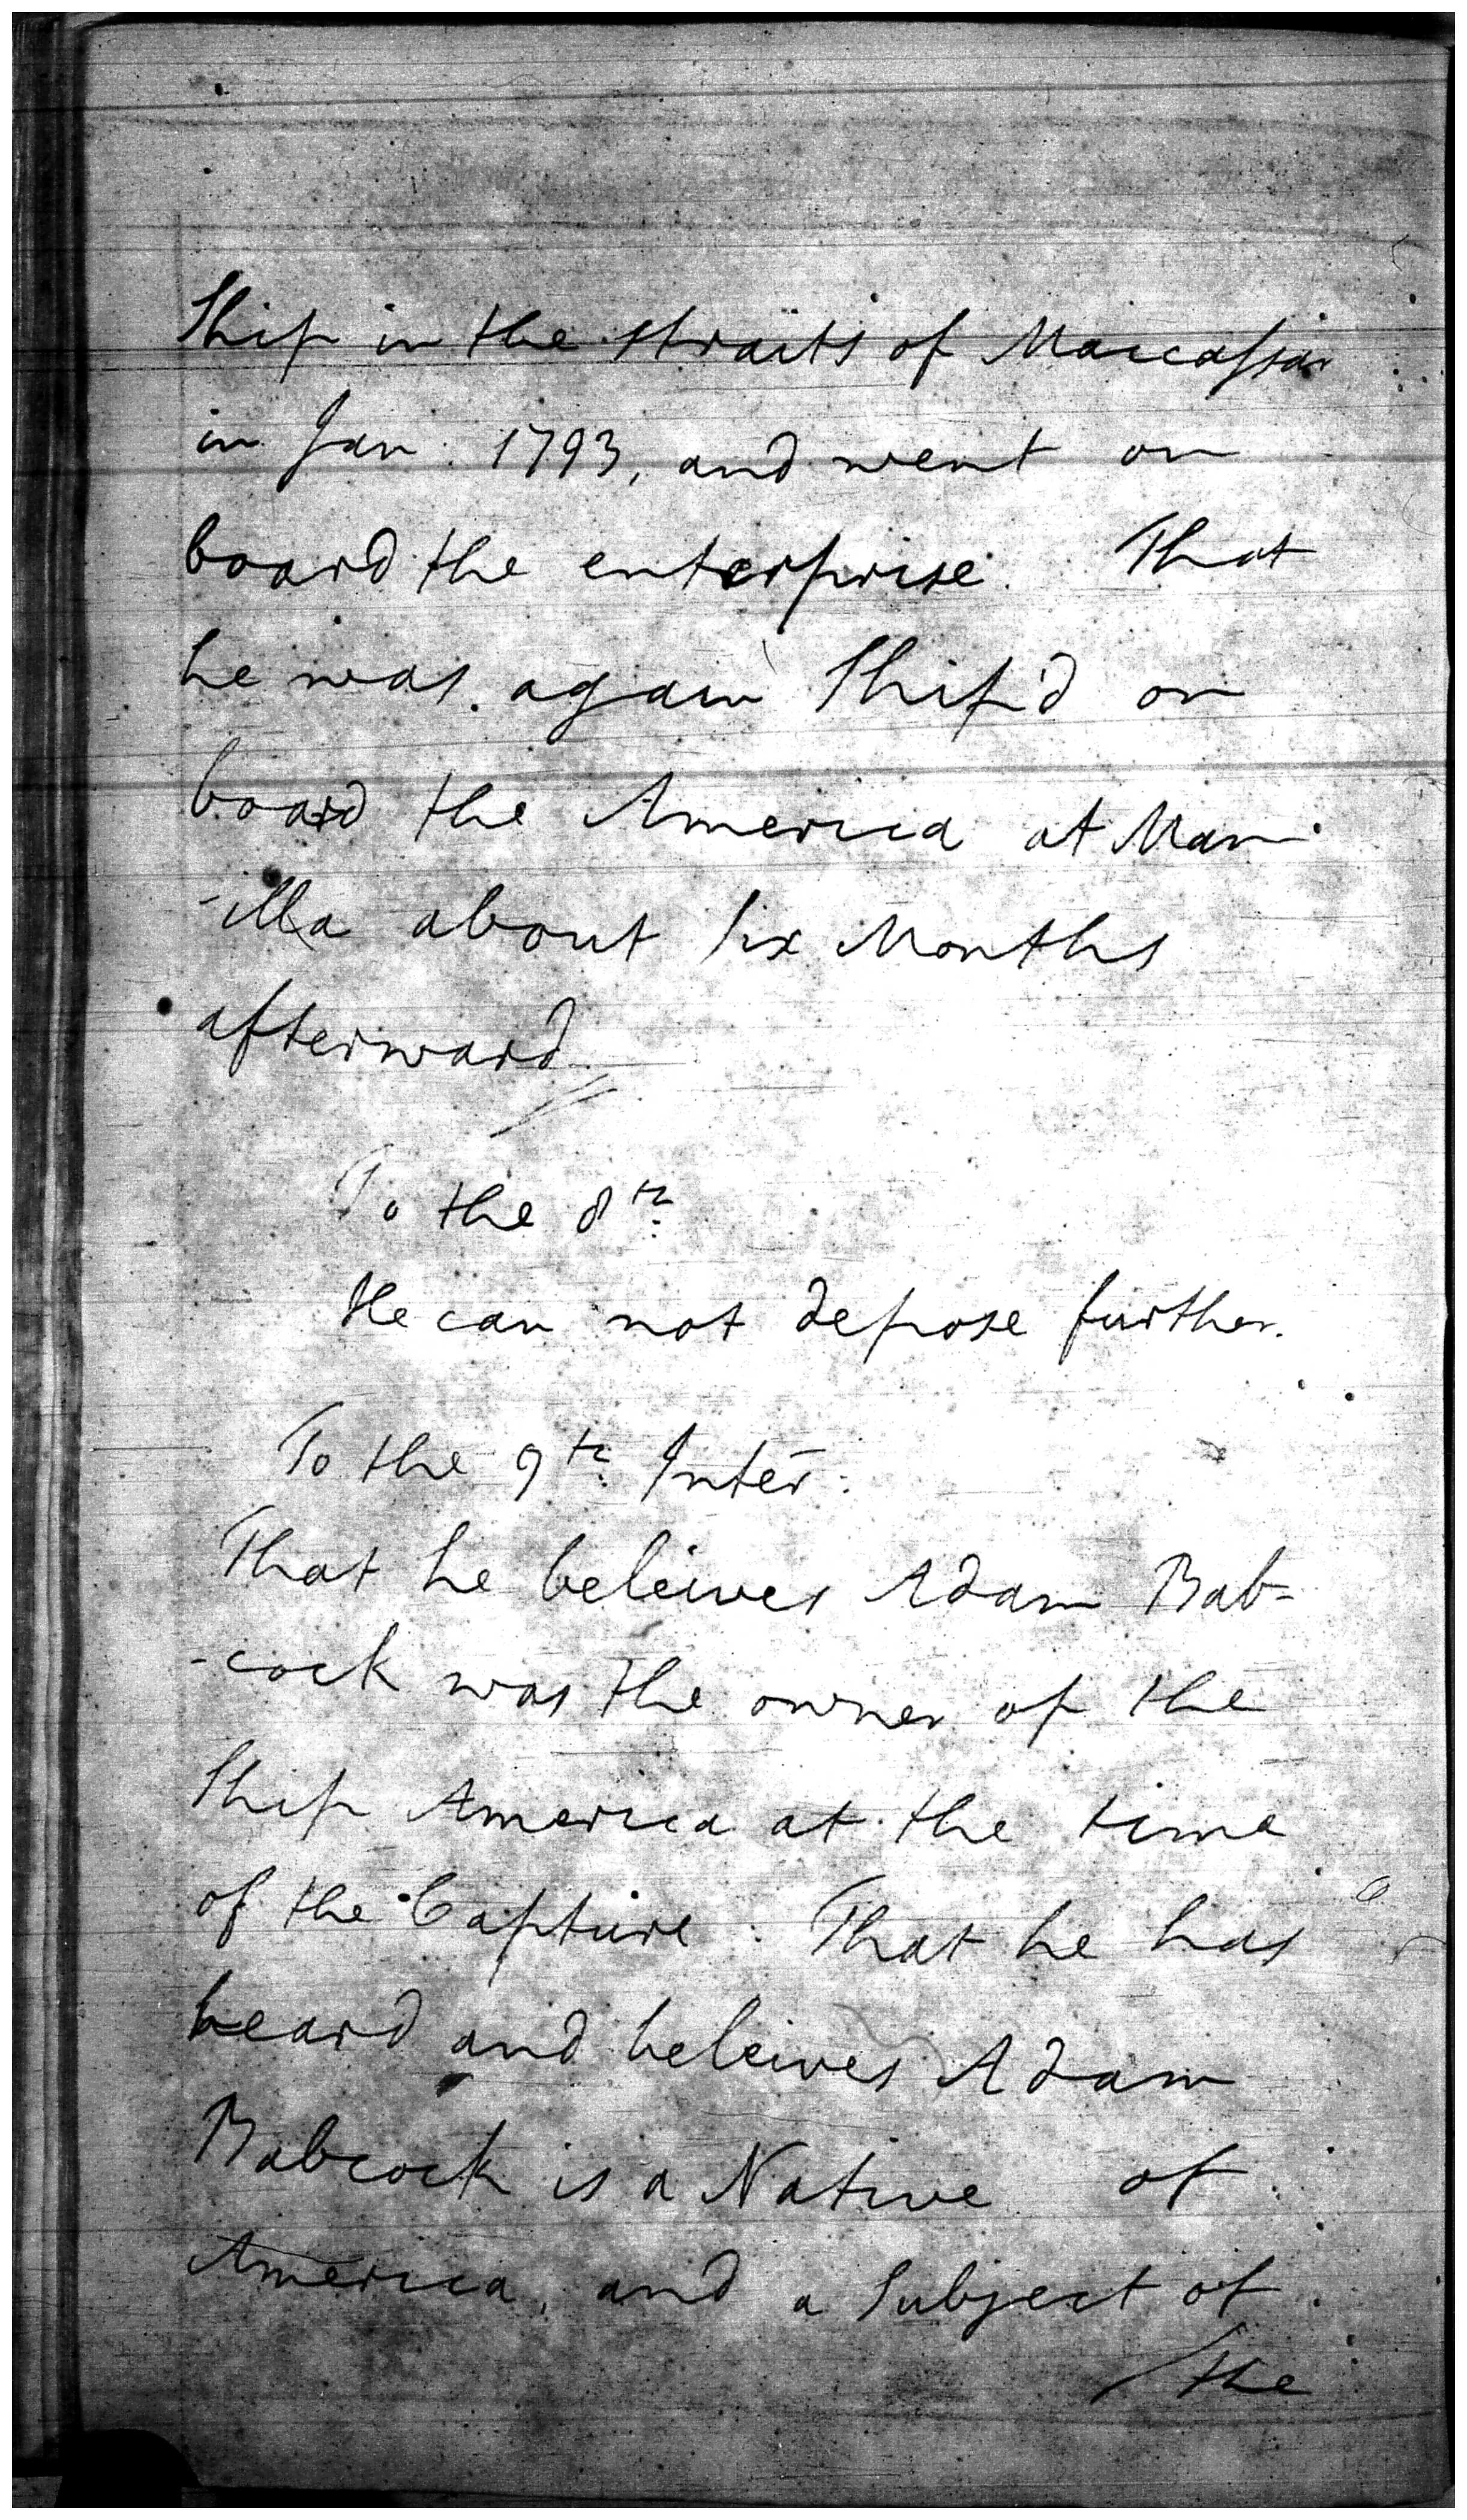 Ship in the Straits of Maccassar
in Jan. 1793, and went on
board the enterprise. That
he was again Ship'd on
board the America at Man
-illa about Six Months
afterward
To the 8th
He can not depose further.
To the 9th Inter:
That he beleives Adam Bab-
-cock was the owner of the
Ship America at the time
of the Capture. That he has
heard and beleives Adam
Babcock is a Native of
America, and a Subject of
the